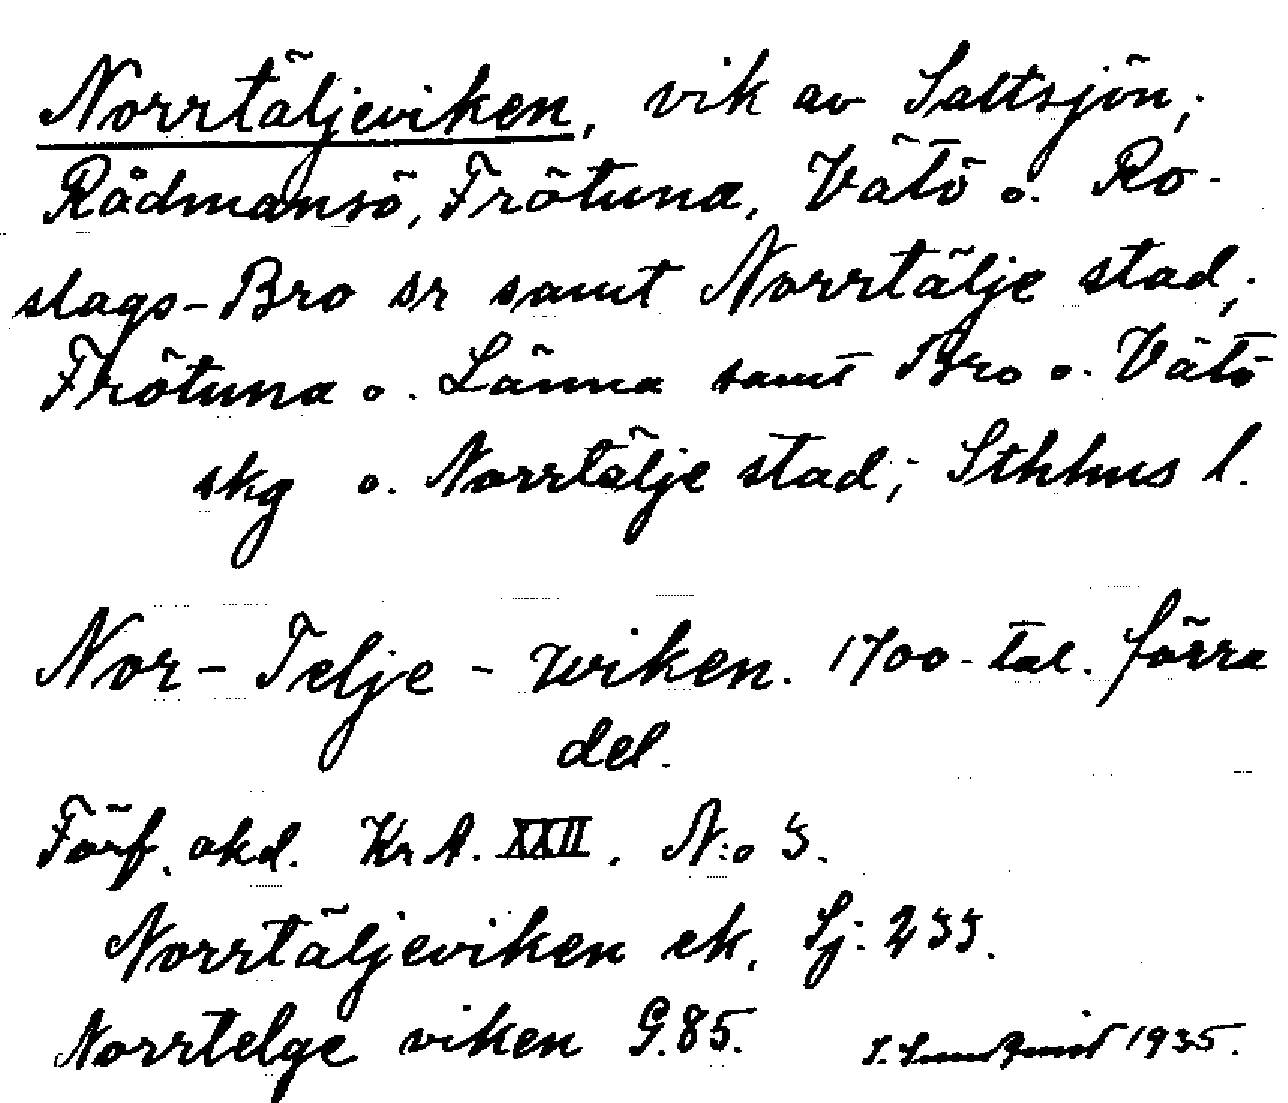 Norrtäljeviken, vik av Saltsjön;
Rådmansö, Frötuna, Vätö o. Ro-
slags-Bro sr samt Norrtälje stad;
Frötuna o. Länna samt Bro o. Vätö
skg o. Norrtälje stad; Sthhus l.
Nor-Telje-wiken. 1700-tal. förra
del.
Förf. okd. KrA. XXII. N:o 3.
Norrtäljeviken ek. Sj: 233.
Norrtelge viken G.85. 1935.